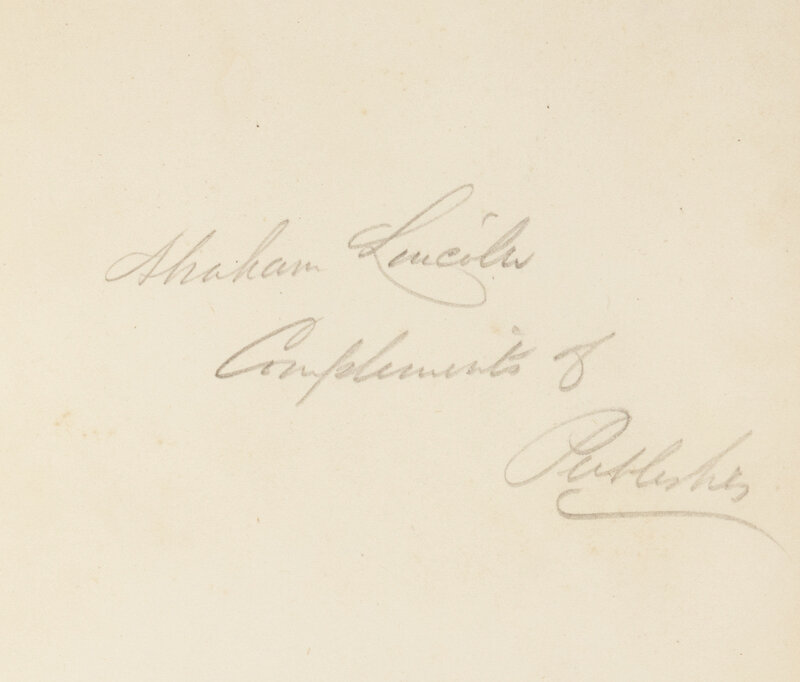 Abraham Lincoln
Complements of
Publisher